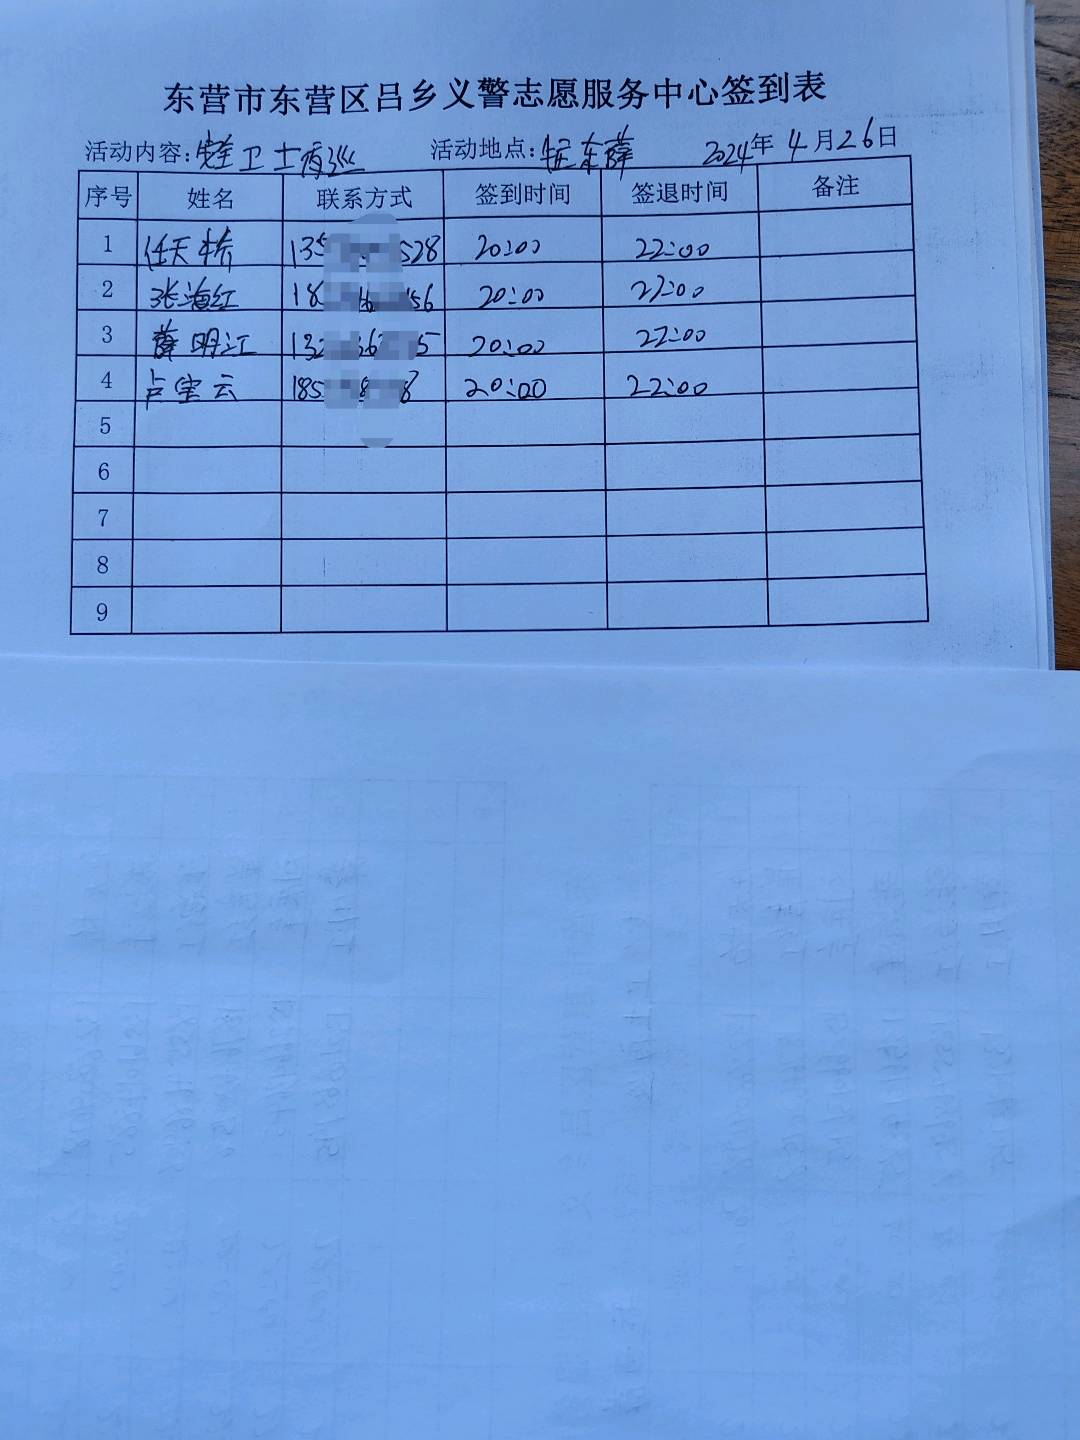 东营市东营区吕乡义警志愿服务中心签到表
活动内容: 卫士夜巡 活动地点: 东薛 2024年4月26日
序号 姓名 联系方式 签到时间 签退时间 备注
1 任天桥 20:00 22:00
2 张海红 20:00 22:00
3 薛明江 20:00 22:00
4 卢宝云 20:00 22:00
5
6
7
8
9